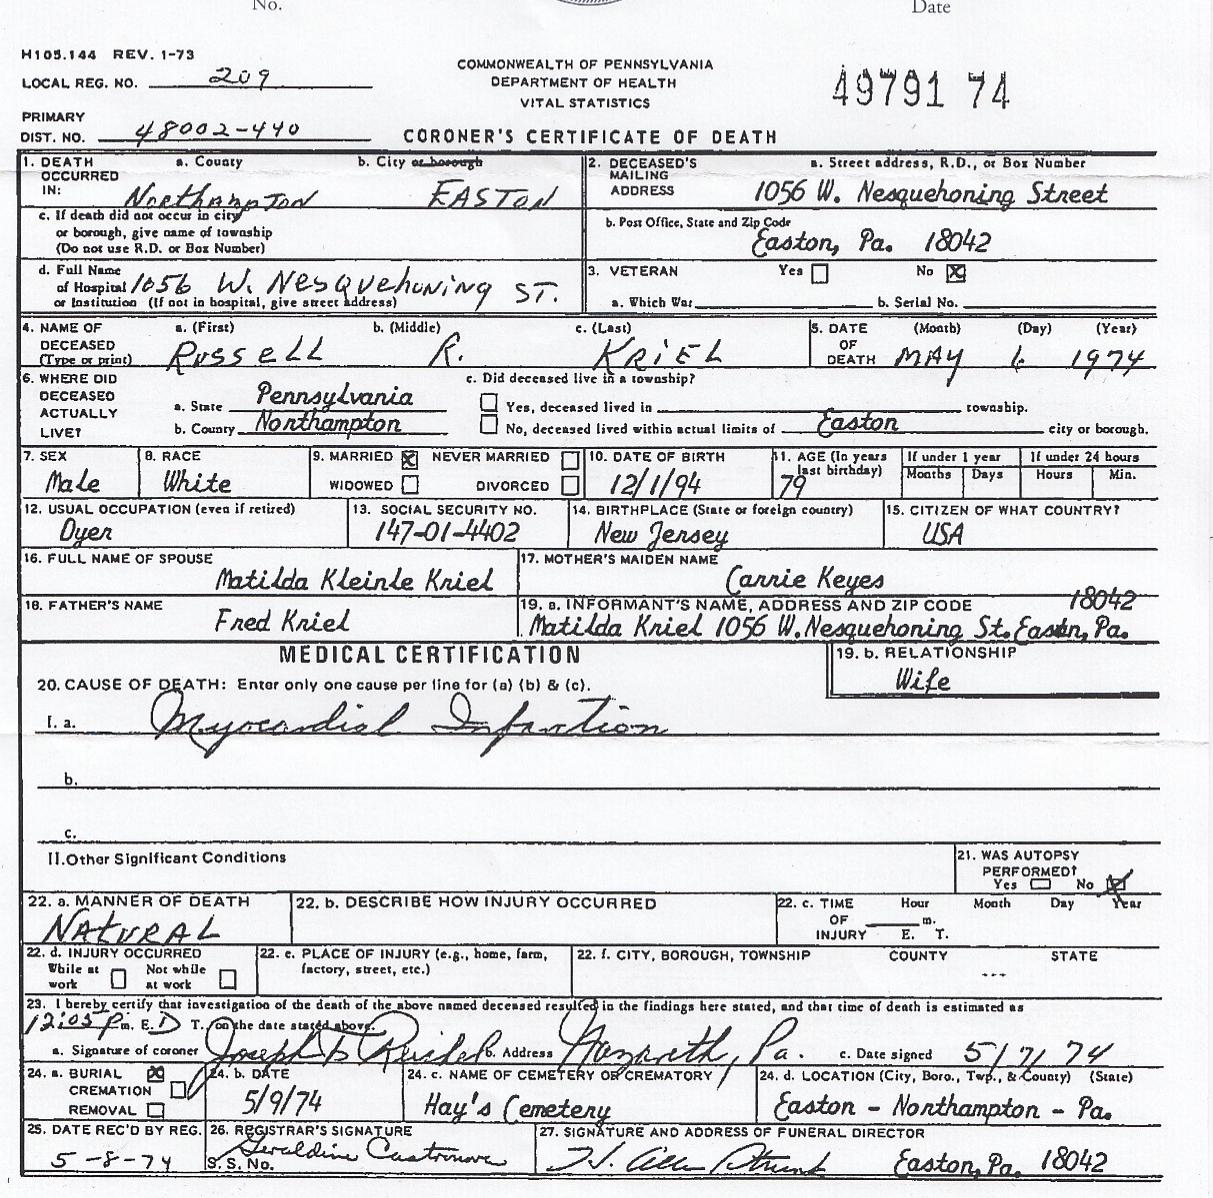 No. Date
H105.144 REV. 1-73
LOCAL REG. NO. 209
COMMONWEALTH OF PENNSYLVANIA
DEPARTMENT OF HEALTH
VITAL STATISTICS
49791 74
PRIMARY
DIST. NO. 48002-440
CORONER'S CERTIFICATE OF DEATH
1. DEATH OCCURRED IN: a. County b. City or borough
Northampton EASTON
2. DECEASED'S MAILING ADDRESS a. Street address, R.D., or Box Number
1056 W. Nesquehoning Street
c. If death did not occur in city
or borough, give name of township
(Do not use R.D. or Box Number)
b. Post Office, State and Zip Code
Easton, Pa. 18042
d. Full Name
of Hospital 1056 W. Nesquehoning ST.
or Institution (If not in hospital, give street address)
3. VETERAN Yes No X
a. Which War b. Serial No.
4. NAME OF DECEASED (Type or print) a. (First) b. (Middle) c. (Last)
Russell R. KRIEL
5. DATE OF DEATH (Month) (Day) (Year)
MAY 6 1974
6. WHERE DID DECEASED ACTUALLY LIVE?
a. State Pennsylvania
b. County Northampton
c. Did deceased live in a township?
Yes, deceased lived in township.
No, deceased lived within actual limits of Easton city or borough.
7. SEX
Male
8. RACE
White
9. MARRIED X NEVER MARRIED
WIDOWED DIVORCED
10. DATE OF BIRTH
12/1/94
11. AGE (In years last birthday)
79
If under 1 year
Months Days
If under 24 hours
Hours Min.
12. USUAL OCCUPATION (even if retired)
Dyer
13. SOCIAL SECURITY NO.
147-01-4402
14. BIRTHPLACE (State or foreign country)
New Jersey
15. CITIZEN OF WHAT COUNTRY?
USA
16. FULL NAME OF SPOUSE
Matilda Kleinle Kriel
17. MOTHER'S MAIDEN NAME
Carrie Keyes
18. FATHER'S NAME
Fred Kriel
19. a. INFORMANT'S NAME, ADDRESS AND ZIP CODE 18042
Matilda Kriel 1056 W. Nesquehoning St. Easton, Pa.
MEDICAL CERTIFICATION
19. b. RELATIONSHIP
Wife
20. CAUSE OF DEATH: Enter only one cause per line for (a) (b) & (c).
I. a. Myocardial Infarction
b.
c.
II. Other Significant Conditions
21. WAS AUTOPSY PERFORMED?
Yes No X
22. a. MANNER OF DEATH
NATURAL
22. b. DESCRIBE HOW INJURY OCCURRED
22. c. TIME OF INJURY Hour Month Day Year
m.
E. T.
22. d. INJURY OCCURRED
While at work Not while at work
22. e. PLACE OF INJURY (e.g., home, farm, factory, street, etc.)
22. f. CITY, BOROUGH, TOWNSHIP COUNTY STATE
---
23. I hereby certify that investigation of the death of the above named deceased resulted in the findings here stated, and that time of death is estimated as
12:05 P m. E. D T., on the date stated above.
a. Signature of coroner Joseph b. Address Nazareth, Pa. c. Date signed 5/7/74
24. a. BURIAL X
CREMATION
REMOVAL
24. b. DATE
5/9/74
24. c. NAME OF CEMETERY OR CREMATORY
Hay's Cemetery
24. d. LOCATION (City, Boro., Twp., & County) (State)
Easton - Northampton - Pa.
25. DATE REC'D BY REG.
5-8-74
26. REGISTRAR'S SIGNATURE
Geraldine Castronova
S.S. No.
27. SIGNATURE AND ADDRESS OF FUNERAL DIRECTOR
Easton, Pa. 18042